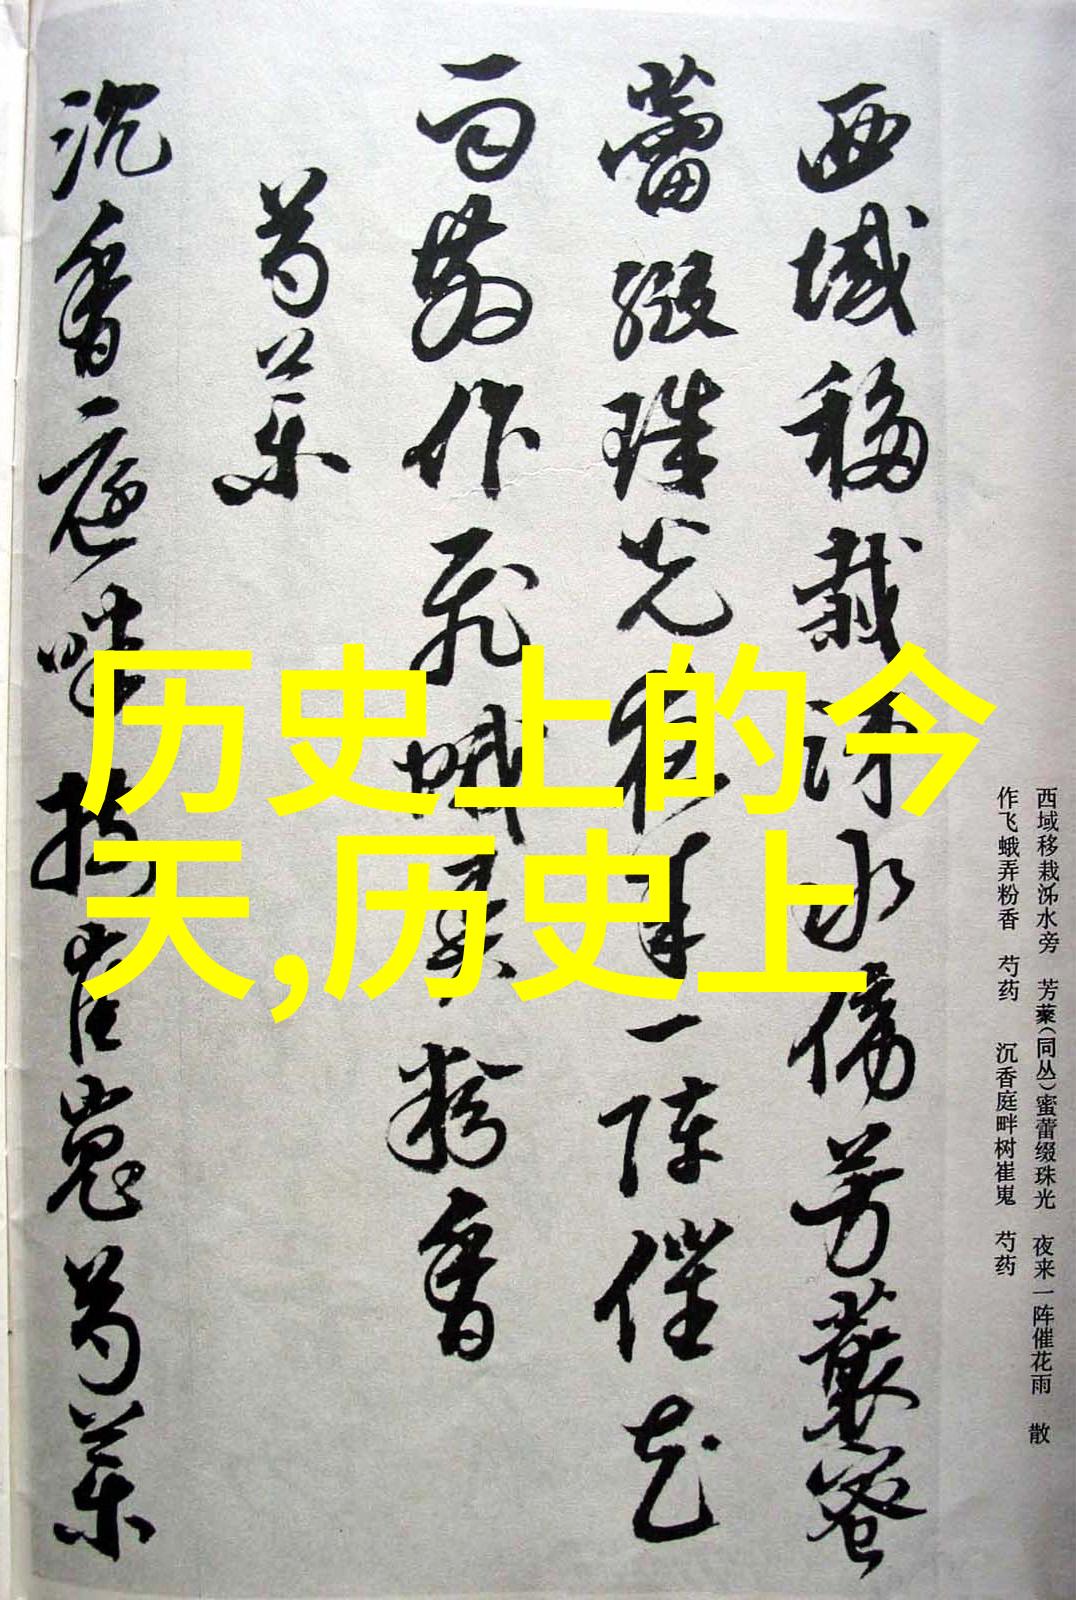 西域移栽泲水傍芳藂蜜
蕾缀珠光夜来一阵催花
雨散作飞蛾弄粉香
芍药
沉香庭畔树崔嵬芍药
历史上的今
天,历史上
西域移栽泲水旁 芳藂(同丛)蜜蕾缀珠光 夜来一阵催花雨 散
作飞蛾弄粉香 芍药 沉香庭畔树崔嵬 芍药